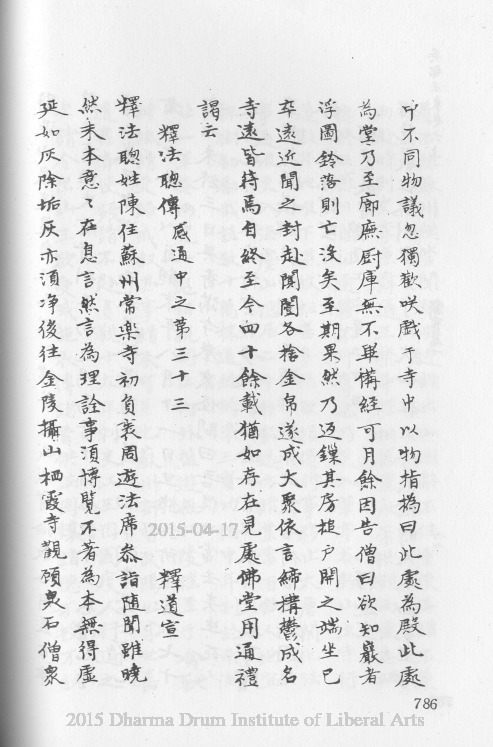 叩不同物議忽獨歡咲戲于寺中以物指撝曰此處為殿此處
為堂乃至廊廡廚庫無不畢備經可月餘因告僧曰欲知巖者
浮圖鈴落則亡沒矣至期果然乃返鏁其房搥戶開之端坐已
卒遠近聞之封赴闐闠各捨金帛遂成大聚依言締搆鬱成名
寺遠皆持焉自終至今四十餘載猶如存在見處佛堂用通禮
謁云
釋法聰傳 感通中之第三十三 釋道宣
釋法聰姓陳住蘇州常樂寺初負袠周遊法席叅詣随聞雖曉
然未本意〻在息言然言為理詮事湏博覽不著為本無得虛
延如灰除垢灰亦湏净後往金陵攝山栖霞寺觀顧泉石僧眾
2015-04-17
786
2015 Dharma Drum Institute of Liberal Arts